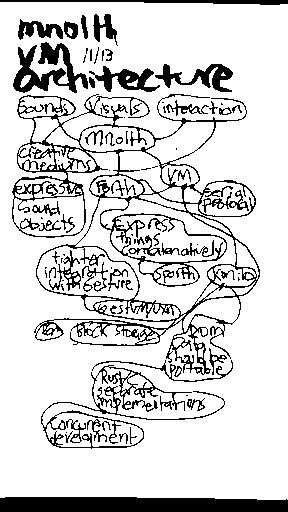 mnolth
VM 1/1/13
architecture
Sounds Visuals interaction
mnolth
Creative
mediums
VM
expressive
Sound
Objects
Forth
Serial
protocol
Express
things
concatenatively
tighter
integration
with Gesture
Sporth
GestVM
Block Storage
ROM
Data
Should be
portable
Rust/C
separate
implementations
Concurrent
development